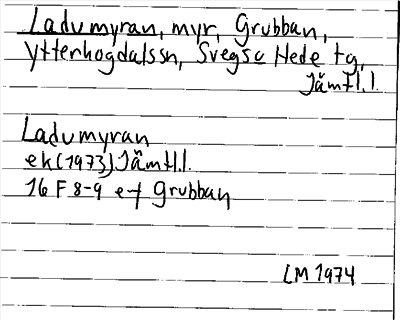 Ladumyran, myr, Grubban,
Ytterhogdalssn, Svegs o Hede tg,
Jämtl.l.
Ladumyran
ek (1973) Jämtl.l.
16 F 8-9 e-f Grubban
LM 1974